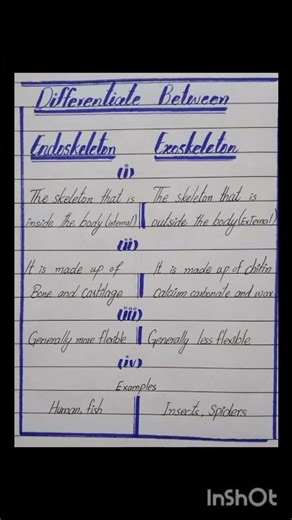 Differentiate Between
Endoskeleton Exoskeleton
(i)
The skeleton that is The skeleton that is
inside the body (internal) outside the body (External)
(ii)
It is made up of It is made up of chitin
Bone and Castilage Calcium carbonate and wax
(iii)
Generally more flexible Generally less flexible
(iv)
Examples
Human, fish Insects, Spiders
InShOt